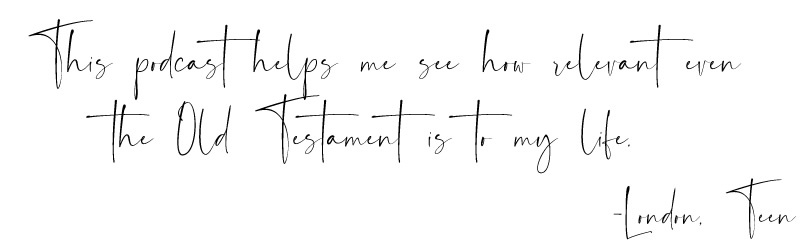 This podcast helps me see how relevant even
the Old Testament is to my life.
-London, Teen